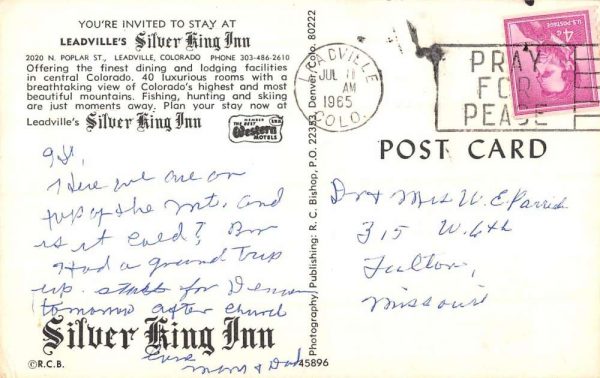 YOU'RE INVITED TO STAY AT
LEADVILLE'S Silver King Inn
2020 N. POPLAR ST., LEADVILLE, COLORADO PHONE 303-486-2610
Offering the finest dining and lodging facilities
in central Colorado. 40 luxurious rooms with a
breathtaking view of Colorado's highest and most
beautiful mountains. Fishing, hunting and skiing
are just moments away. Plan your stay now at
Leadville's Silver King Inn
MEMBER
THE BEST
Western
MOTELS
INN
Here we are on
top of the Mt. and
is it cold? Brr
Had a grand trip
up. start for Denver
tomorrow after church
Love
Mom & Dad
Silver King Inn
©R.C.B.
45896
Photography/Publishing: R. C. Bishop, P.O. 22353, Denver, Colo. 80222
LEADVILLE
JUL 11
AM
1965
COLO.
PRAY
FOR
PEACE
4¢
U.S. POSTAGE
POST CARD
Dr & Mrs W. E. Parrish
315 W. 6th
Fulton,
Missouri